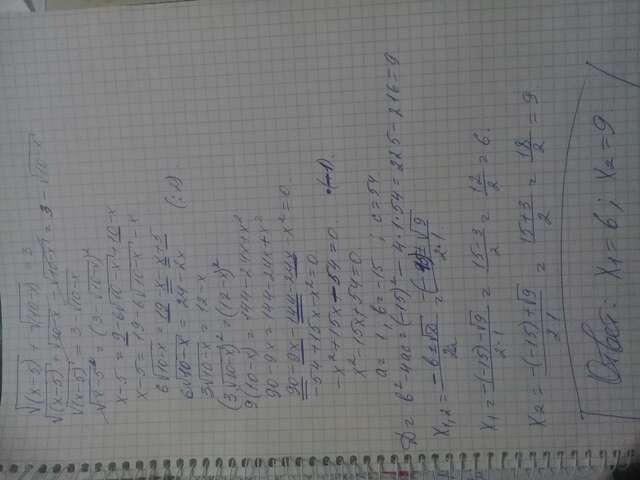 √(x-5) + √(10-x) = 3
√(x-5) + √10-x - √10-x = 3 - √10-x
√(x-5) = 3 - √10-x
√x-5² = (3 - √10-x)²
x-5 = 9 - 6√10-x + 10 - x
x-5 = 19 - 6√10-x - x
6√10-x = 19 - x - x + 5
6√10-x = 24 - 2x (:2)
3√10-x = 12 - x
(3√10-x)² = (12-x)²
9(10-x) = 144 - 24x + x²
90 - 9x = 144 - 24x + x²
90 - 9x - 144 + 24x - x² = 0
-54 + 15x - x² = 0
-x² + 15x - 54 = 0 ·(-1)
x² - 15x + 54 = 0
a = 1; b = -15; c = 54
D = b² - 4ac = (-15)² - 4·1·54 = 225 - 216 = 9
X₁,₂ = (-b ± √D)/2a = (-(-15) ± √9)/2·1
X₁ = (-(-15) - √9)/2·1 = (15-3)/2 = 12/2 = 6.
X₂ = (-(-15) + √9)/2·1 = (15+3)/2 = 18/2 = 9
Ответ: X₁ = 6; X₂ = 9